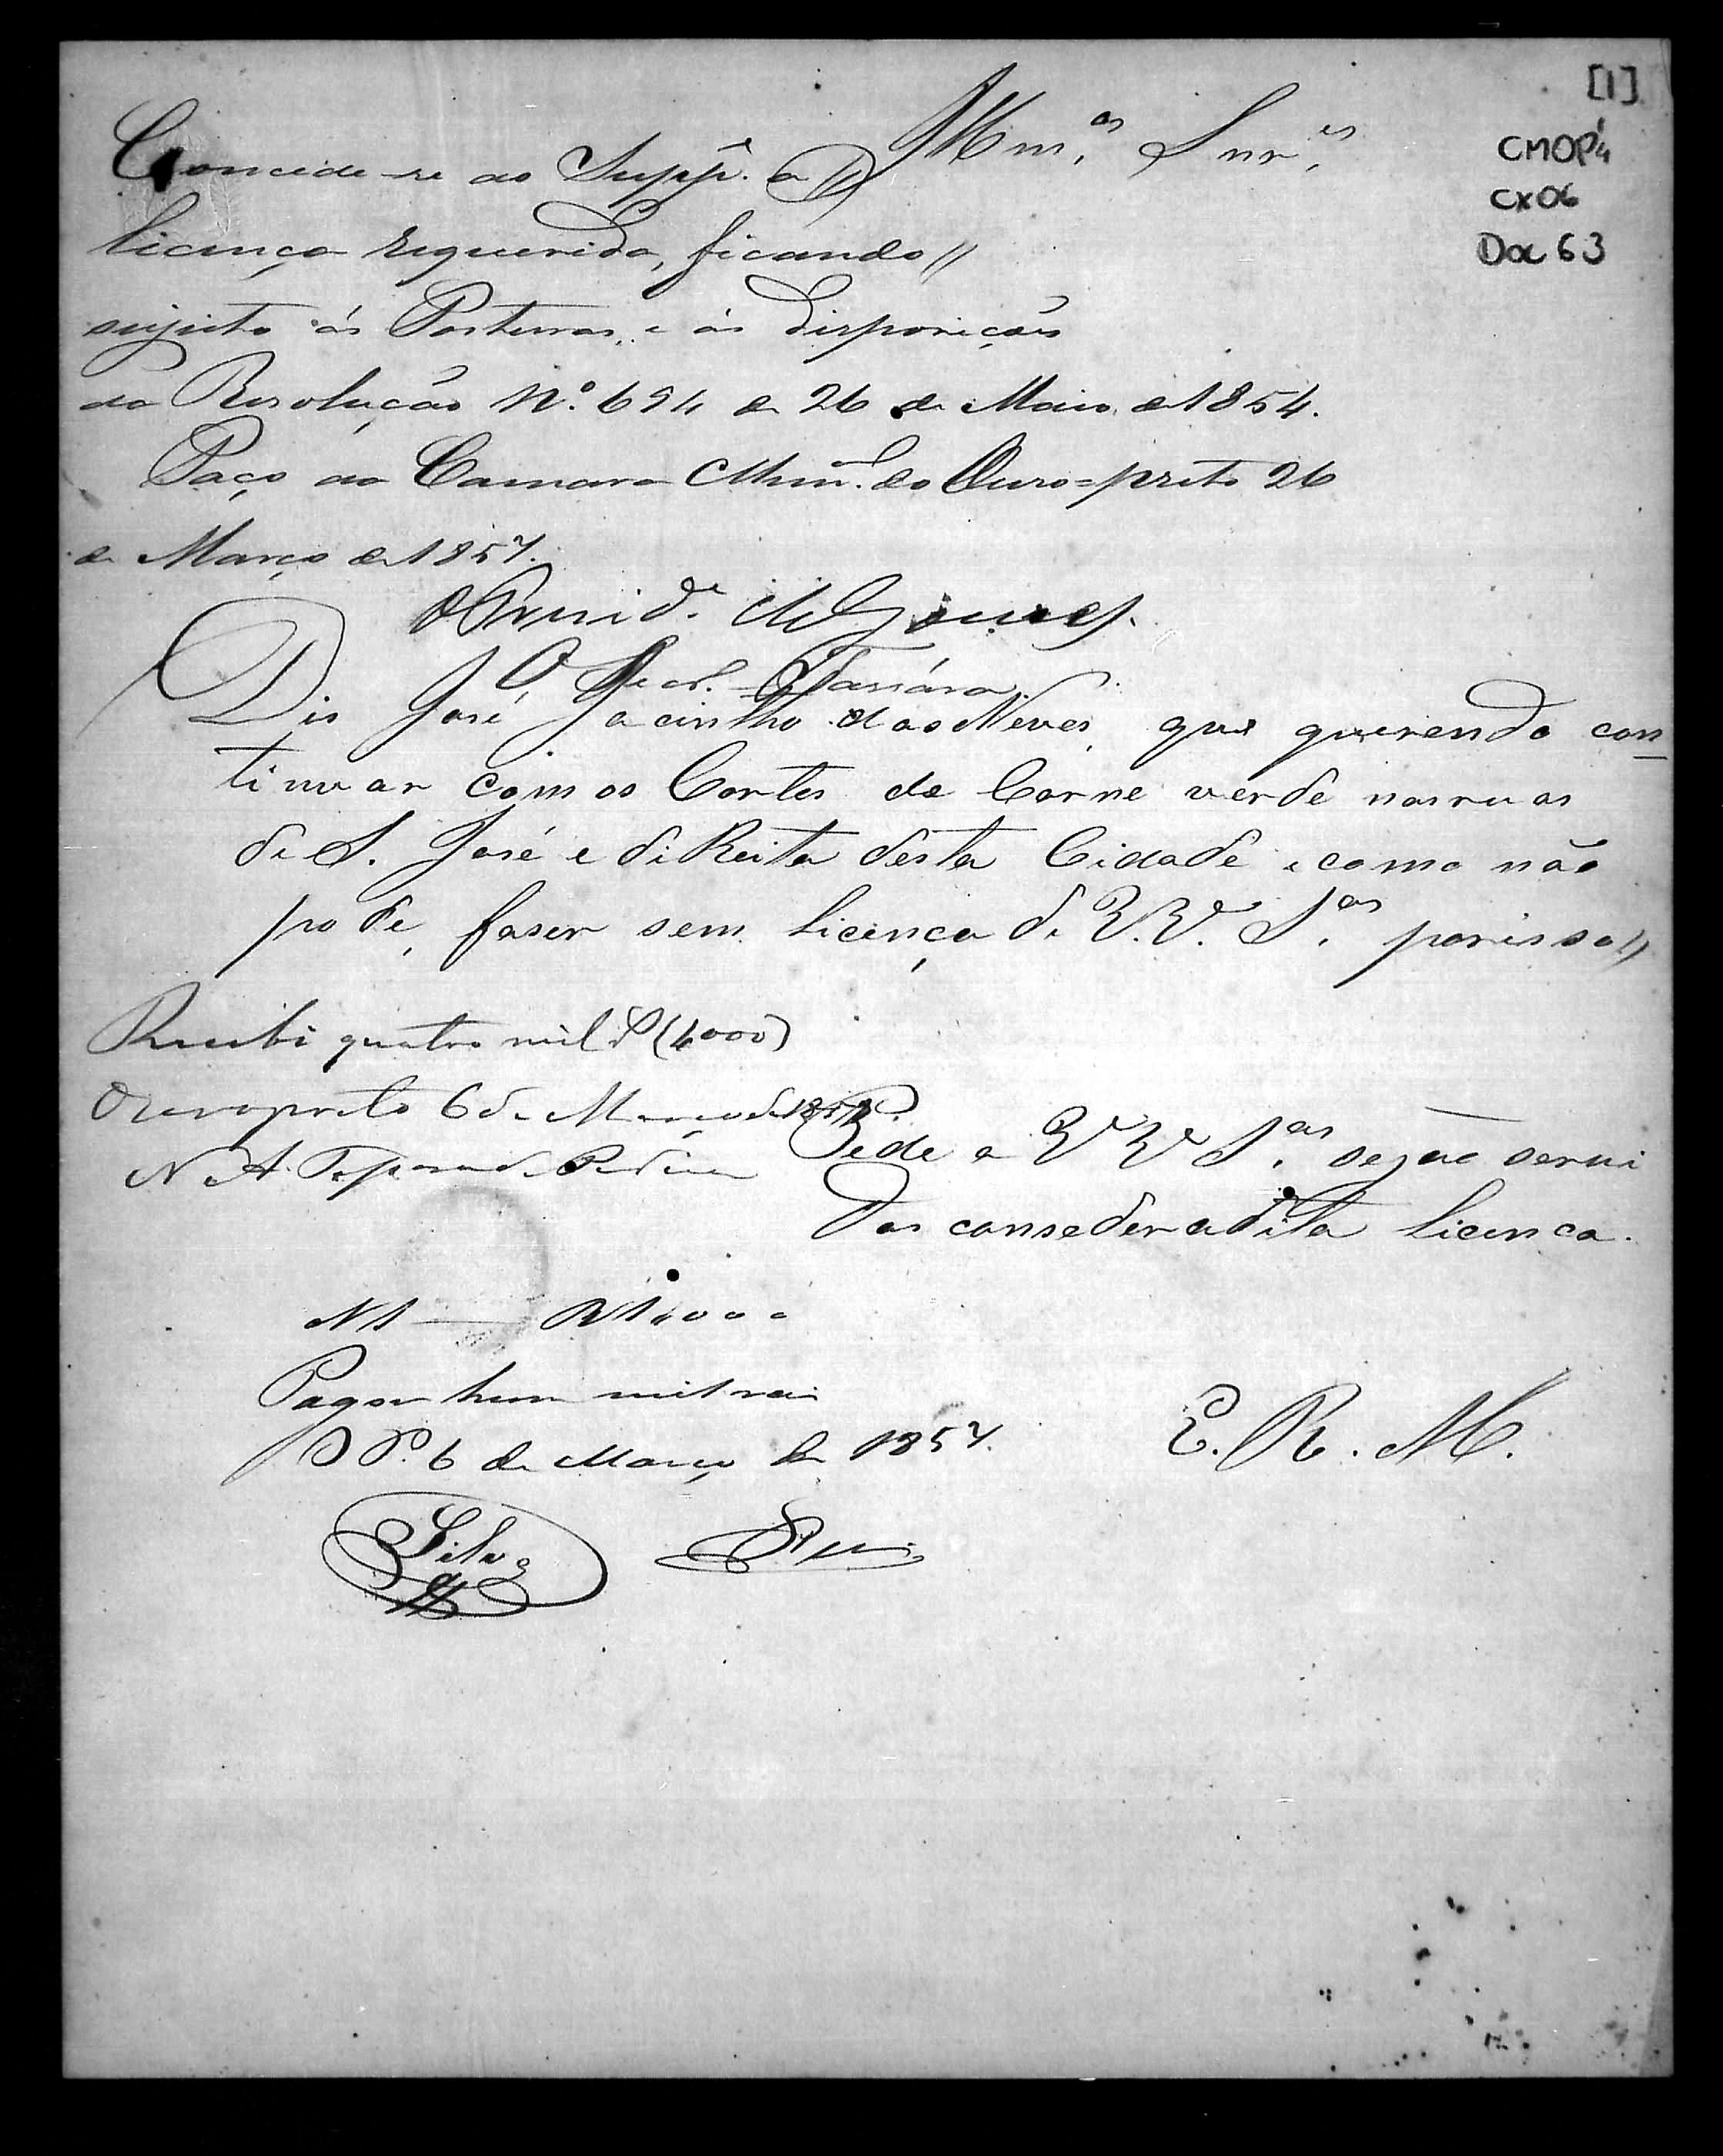 [1]
CMOP
CX06
Doc 63
Illm.os Snr.es
Concede-se ao Supp.e a
licença requerida, ficando //
sujeito ás Posturas, e ás disposições
da Resolução N.º 694 de 26 de Maio de 1854.
Paço da Camara Mun. do Ouro=preto 26
de Março de 1857.
O Presid.e
O Secr.
Dis José Jacintho das Neves, que querendo con
tinuar com os Cortes de Carne verde nas ruas
de S. José e diReita desta Cidade, e como não
pode, faser sem licença de V.V. S.as por isso //
Recebi quatro mil rs (4000)
Ouropreto 6 de Março de 1857
Pede a VV S.as sejão servi
dos conseder a dita licenca.
N 1 — Rs 1,000
Pagou hum mil reis
O P. 6 de Março de 1857.
E. R. M.
Silva